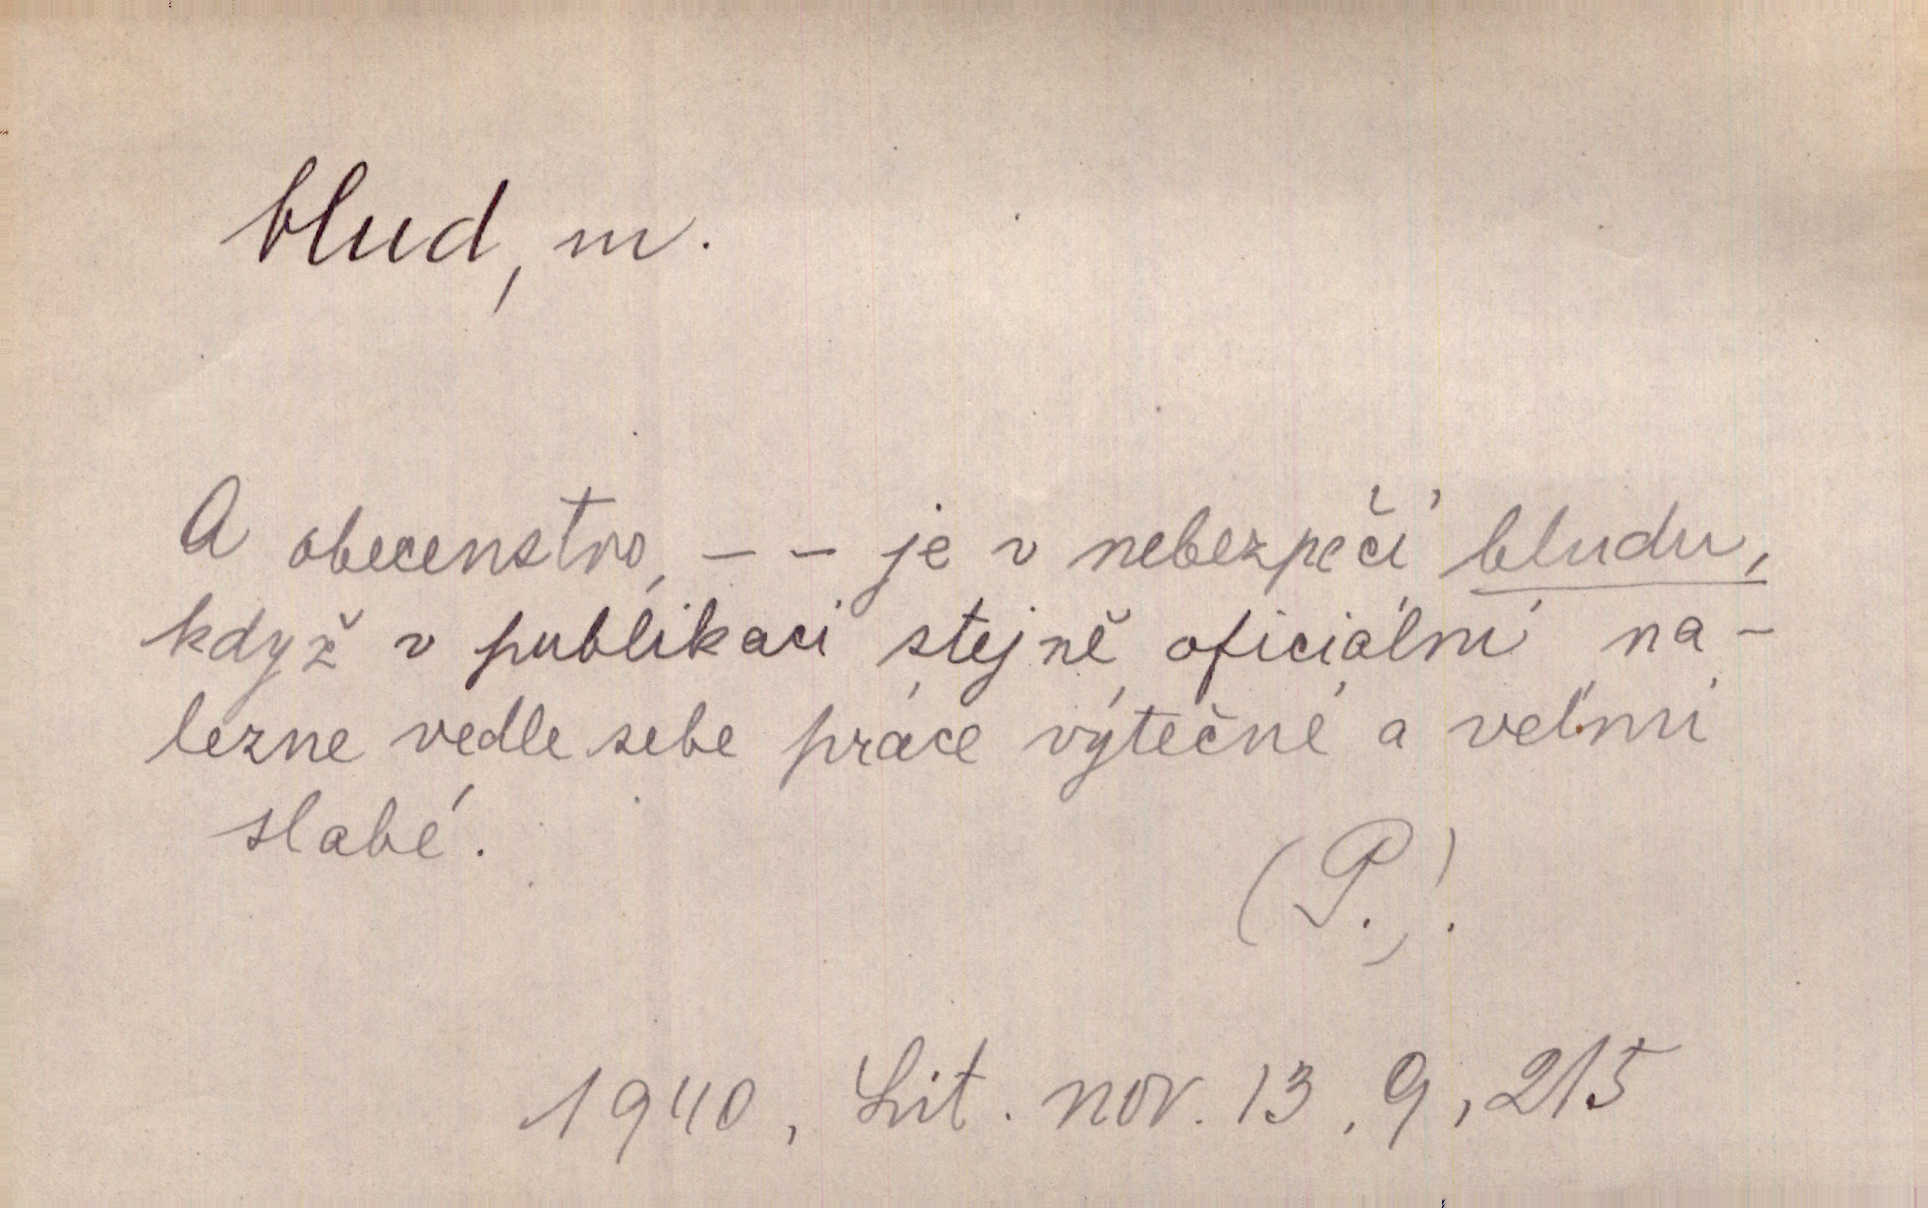 blud, m.
A obecenstvo, – – je v nebezpečí bludu,
když v publikaci stejně oficiální na-
lezne vedle sebe práce výtečné a veľmi
slabé.
(P.).
1940, Lit. nov. 13, 9, 215